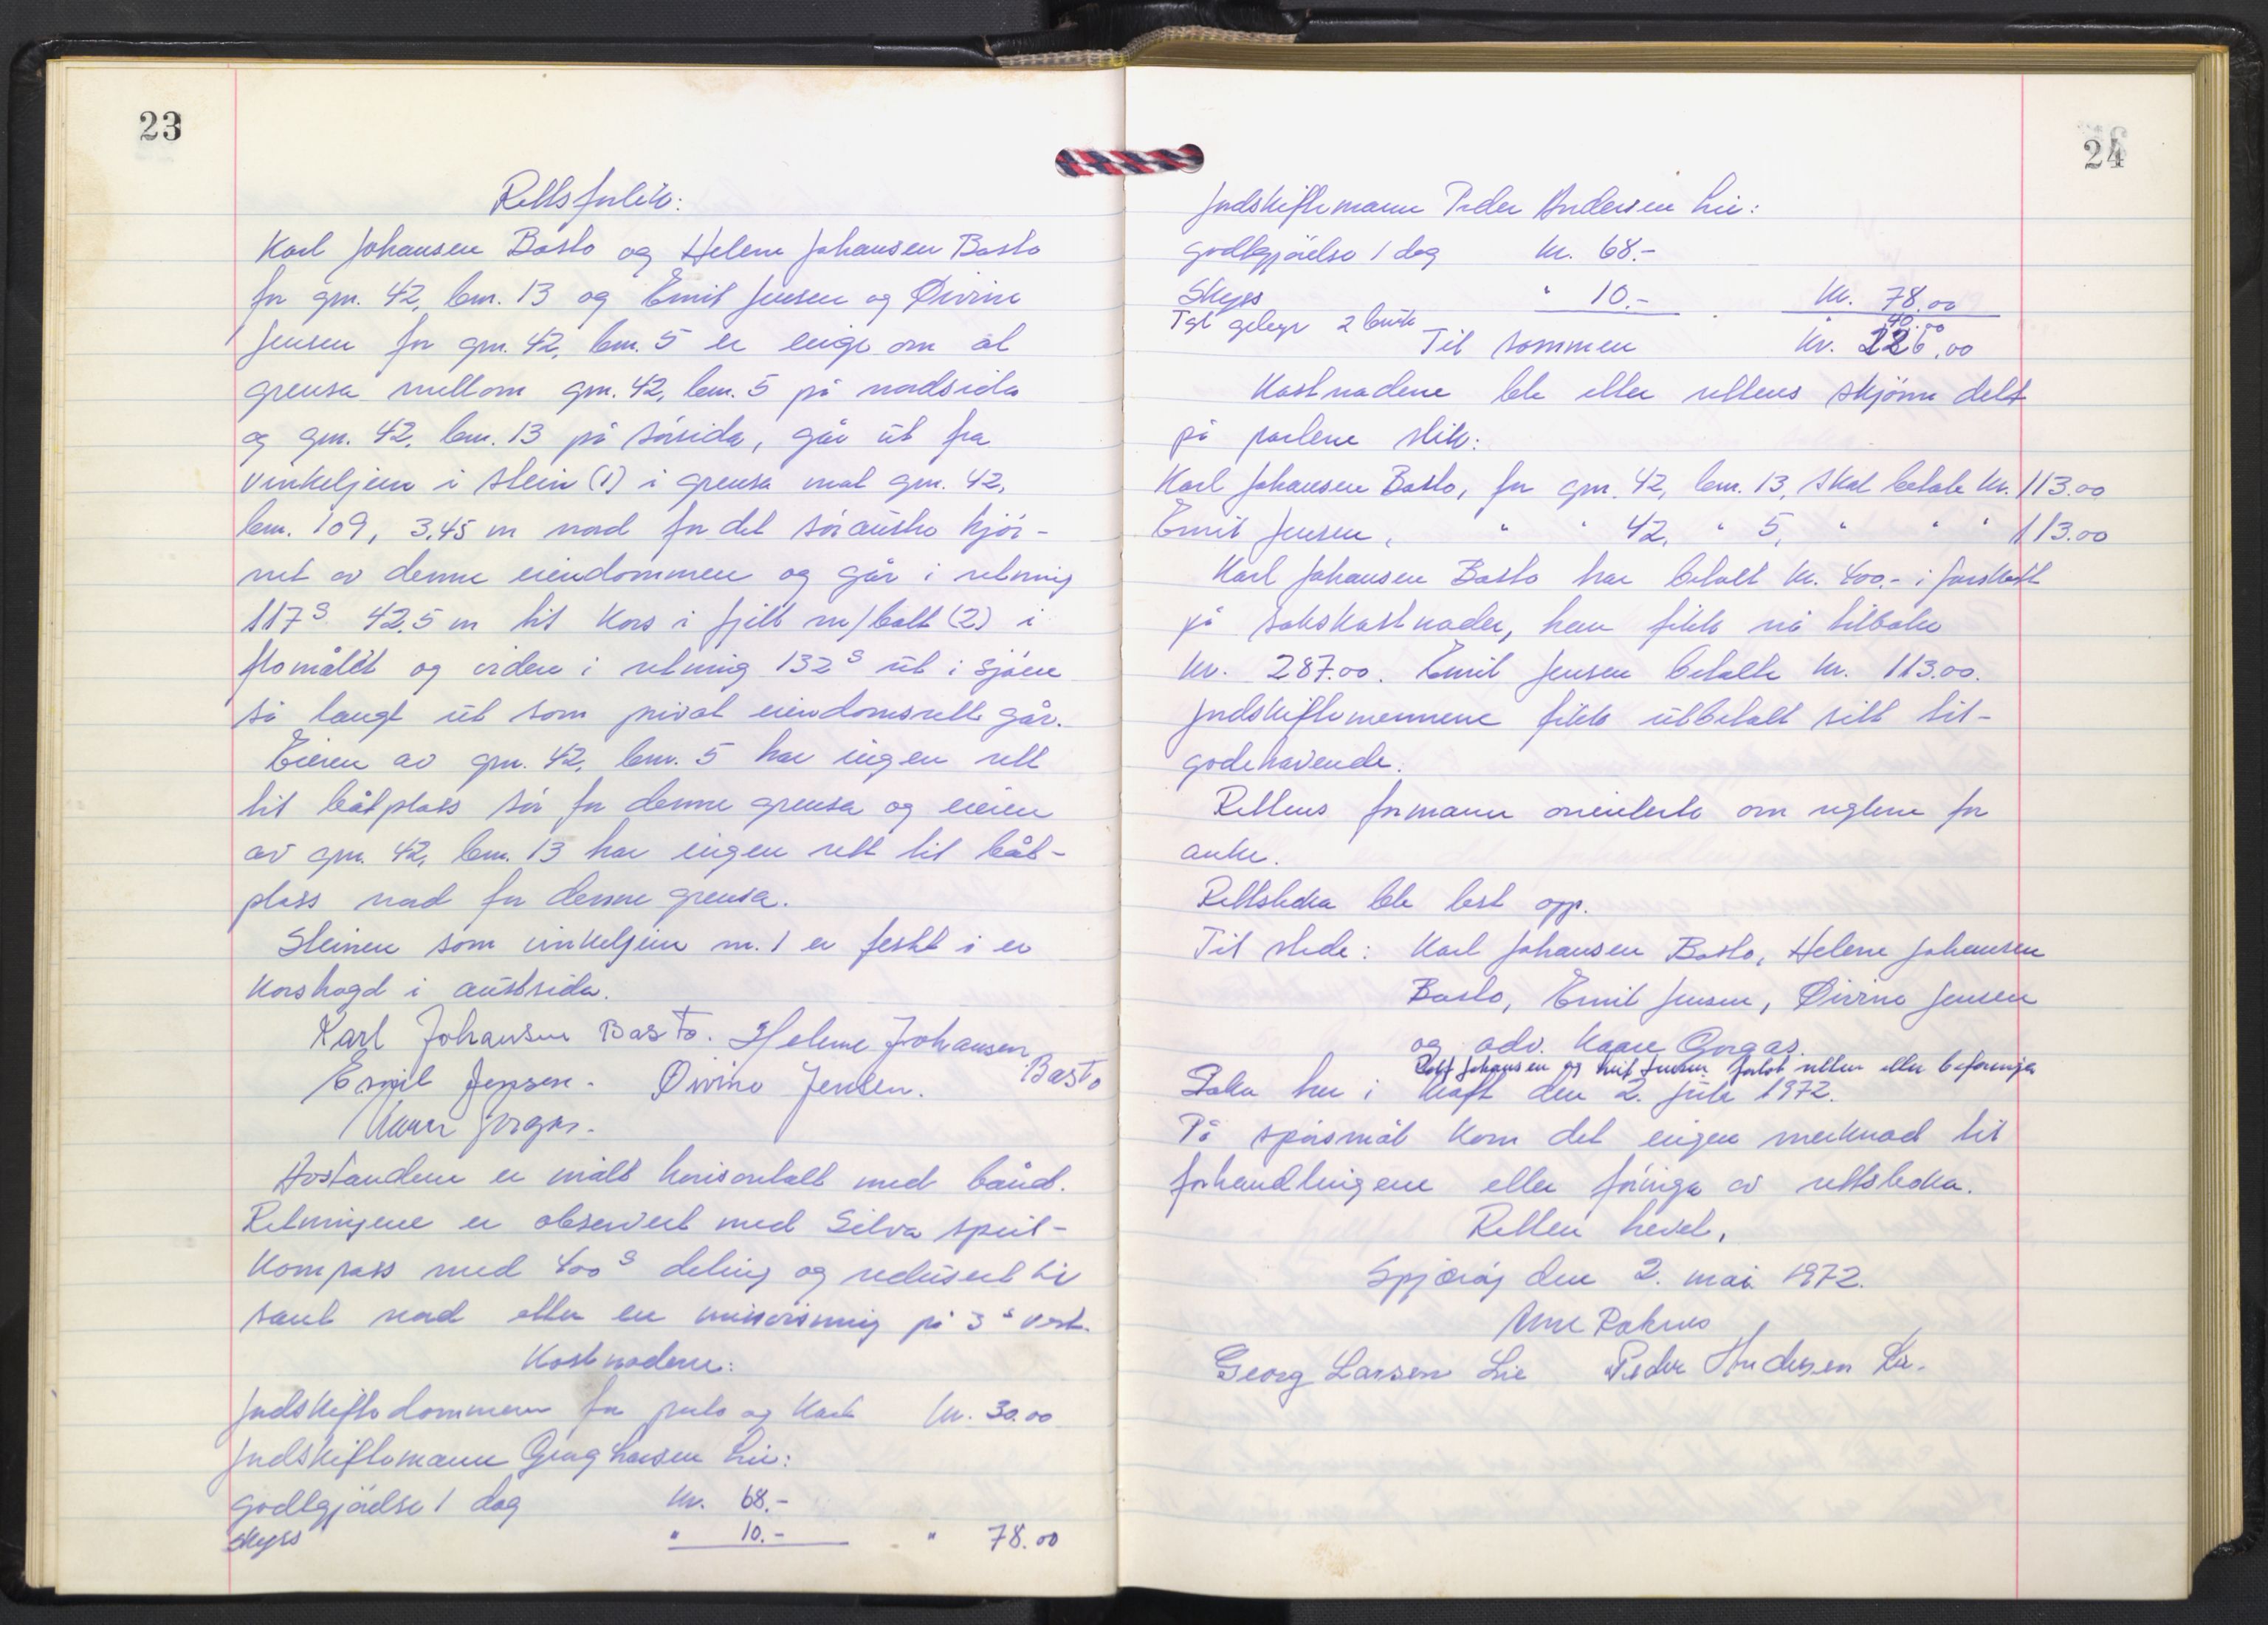 23
Rettsforlik:
Karl Johansen Basto og Helene Johansen Basto
for gnr. 42, bnr. 13 og Emil Jensen og Øivine
Jensen for gnr. 42, bnr. 5 er enige om at
grensa mellom gnr. 42, bnr. 5 på nordsida
og gnr. 42, bnr. 13 på sørsida, går ut fra
vinkeljern i stein (1) i grensa mot gnr. 42,
bnr. 109, 3,45 m nord for det søraustre hjør-
net av denne eiendommen og går i retning
117g 42,5 m til kors i fjell m/bolt (2) i
flomålet og videre i retning 132g ut i sjøen
så langt ut som privat eiendomsrett går.
Eieren av gnr. 42, bnr. 5 har ingen rett
til båtplass sør for denne grensa og eieren
av gnr. 42, bnr. 13 har ingen rett til båt-
plass nord for denne grensa.
Steinen som vinkeljern nr. 1 er festet i er
korshogd i austsida.
Karl Johansen Basto. Helene Johansen
Basto
Emil Jensen. Øivino Jensen.
Kaare Gorgas.
Avstandene er målt horisontalt med bånd.
Retningene er observert med Silva speil-
kompass med 400g deling og redusert til
sant nord etter en misvisning på 3g vest.
Kostnadene:
Jordskiftedommeren for porto og kart kr. 30.00
Jordskiftemann Georg Larsen Lie:
godtgjørelse 1 dag kr. 68.-
skyss " 10.- " 78.00
24
Jordskiftemann Peder Andersen Lie:
godtgjørelse 1 dag kr. 68.-
Skyss " 10.- kr. 78.00
Tgl gebyr 2 bruk 40.00
Til sammen kr. 226.00
Kostnadene ble etter rettens skjønn delt
på partene slik:
Karl Johansen Basto, for gnr. 42, bnr. 13, skal betale kr. 113.00
Emil Jensen, " " 42, " 5, " " " 113.00
Karl Johansen Basto har betalt kr. 400.- i forskott
på sakskostnader, han fikk nå tilbake
kr. 287.00. Emil Jensen betalte kr. 113.00.
Jordskiftemennene fikk utbetalt sitt til-
godehavende.
Rettens formann orienterte om reglene for
anke.
Rettsboka ble lest opp.
Til stede: Karl Johansen Basto, Helene Johansen
Basto, Emil Jensen, Øivine Jensen
og adv. Kaare Gorgas.
Rolf Johansen og Emil Jensen forlot retten etter befaringa
Saka trer i kraft den 2. juli 1972.
På spørsmål kom det ingen merknad til
forhandlingene eller føringa av rettsboka.
Retten hevet.
Spjærøy den 2. mai 1972.
Arne Raknes
Georg Larsen Lie Peder Andersen Lie.